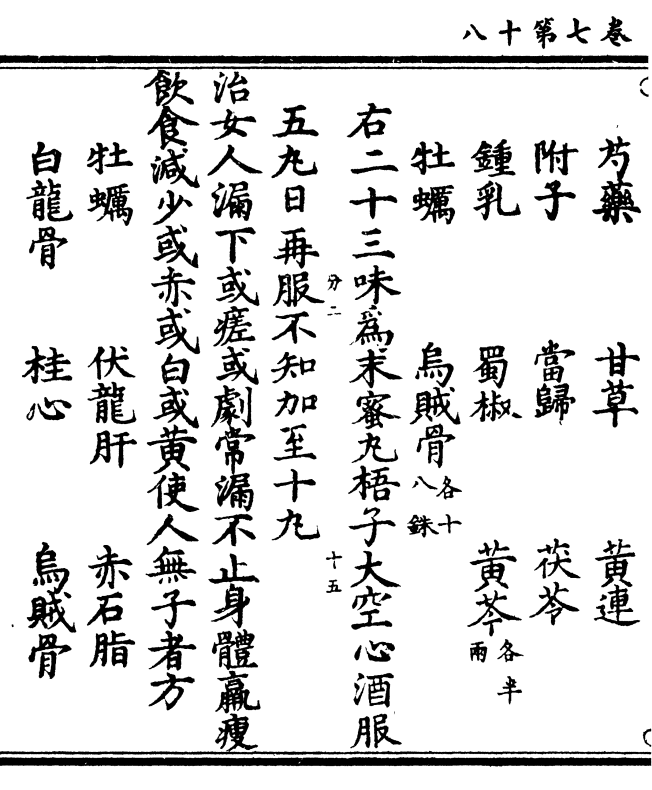 卷七第十八
芍藥 甘草 黃連
附子 當歸 茯苓
鍾乳 蜀椒 黃芩各半兩
牡蠣 烏賊骨各十八銖
右二十三味為末蜜丸梧子大空心酒服
十五
分二
五丸日再服不知加至十丸
治女人漏下或瘥或劇常漏不止身體羸瘦
飲食減少或赤或白或黃使人無子者方
牡蠣 伏龍肝 赤石脂
白龍骨 桂心 烏賊骨